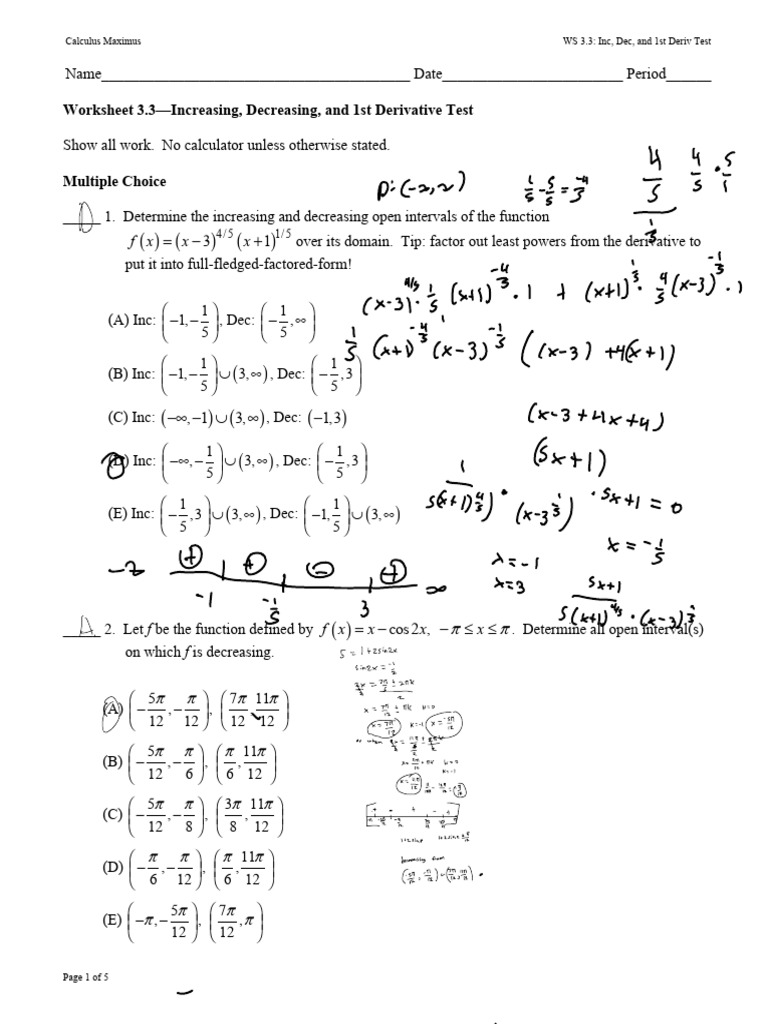 Calculus Maximus WS 3.3: Inc, Dec, and 1st Deriv Test
Name Date Period
Worksheet 3.3—Increasing, Decreasing, and 1st Derivative Test
Show all work. No calculator unless otherwise stated.
Multiple Choice
D: (-2, 2)
1/5 - 5/5 = -4/5
4/5
4/5 · 5/1
D 1. Determine the increasing and decreasing open intervals of the function
f(x) = (x − 3)^{4/5} (x + 1)^{1/5} over its domain. Tip: factor out least powers from the derivative to
put it into full-fledged-factored-form!
(x-3)^{4/5} · 1/5 (x+1)^{-4/5} · 1 + (x+1)^{1/5} · 4/5 (x-3)^{-1/5} · 1
(A) Inc: (−1, −1/5), Dec: (−1/5, ∞)
1/5 (x+1)^{-4/5} (x-3)^{-1/5} ((x-3) + 4(x+1))
(B) Inc: (−1, −1/5) ∪ (3, ∞), Dec: (−1/5, 3)
(C) Inc: (−∞, −1) ∪ (3, ∞), Dec: (−1, 3)
(x-3+4x+4)
(D) Inc: (−∞, −1/5) ∪ (3, ∞), Dec: (−1/5, 3)
(5x+1)
(E) Inc: (−1/5, 3) ∪ (3, ∞), Dec: (−1, 1/5) ∪ (3, ∞)
· 5x+1 = 0
x = -1/5
-2 + + − + ∞
-1 -1/5 3
x = -1
x = 3
5x+1
5(x+1)^{4/5} · (x-3)^{1/5}
A 2. Let f be the function defined by f(x) = x − cos 2x, −π ≤ x ≤ π. Determine all open interval(s)
on which f is decreasing.
(A) (−5π/12, −π/12), (7π/12, 11π/12)
(B) (−5π/12, −π/6), (π/6, 11π/12)
(C) (−5π/12, −π/8), (3π/8, 11π/12)
(D) (−π/6, −π/12), (π/6, 11π/12)
(E) (−π, −5π/12), (7π/12, π)
Page 1 of 5